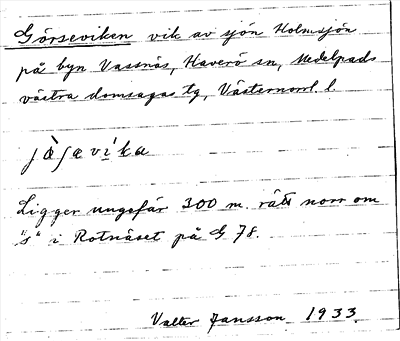 Görseviken vik av sjön Holmsjön
på byn Vassnäs, Haverö sn, Medelpads
västra domsagas tg, Västernorrl. l.
jàʃævi'ka
Ligger ungefär 300 m. rätt norr om
"s" i Rotnäset på G 78.
Valter Jansson 1933.